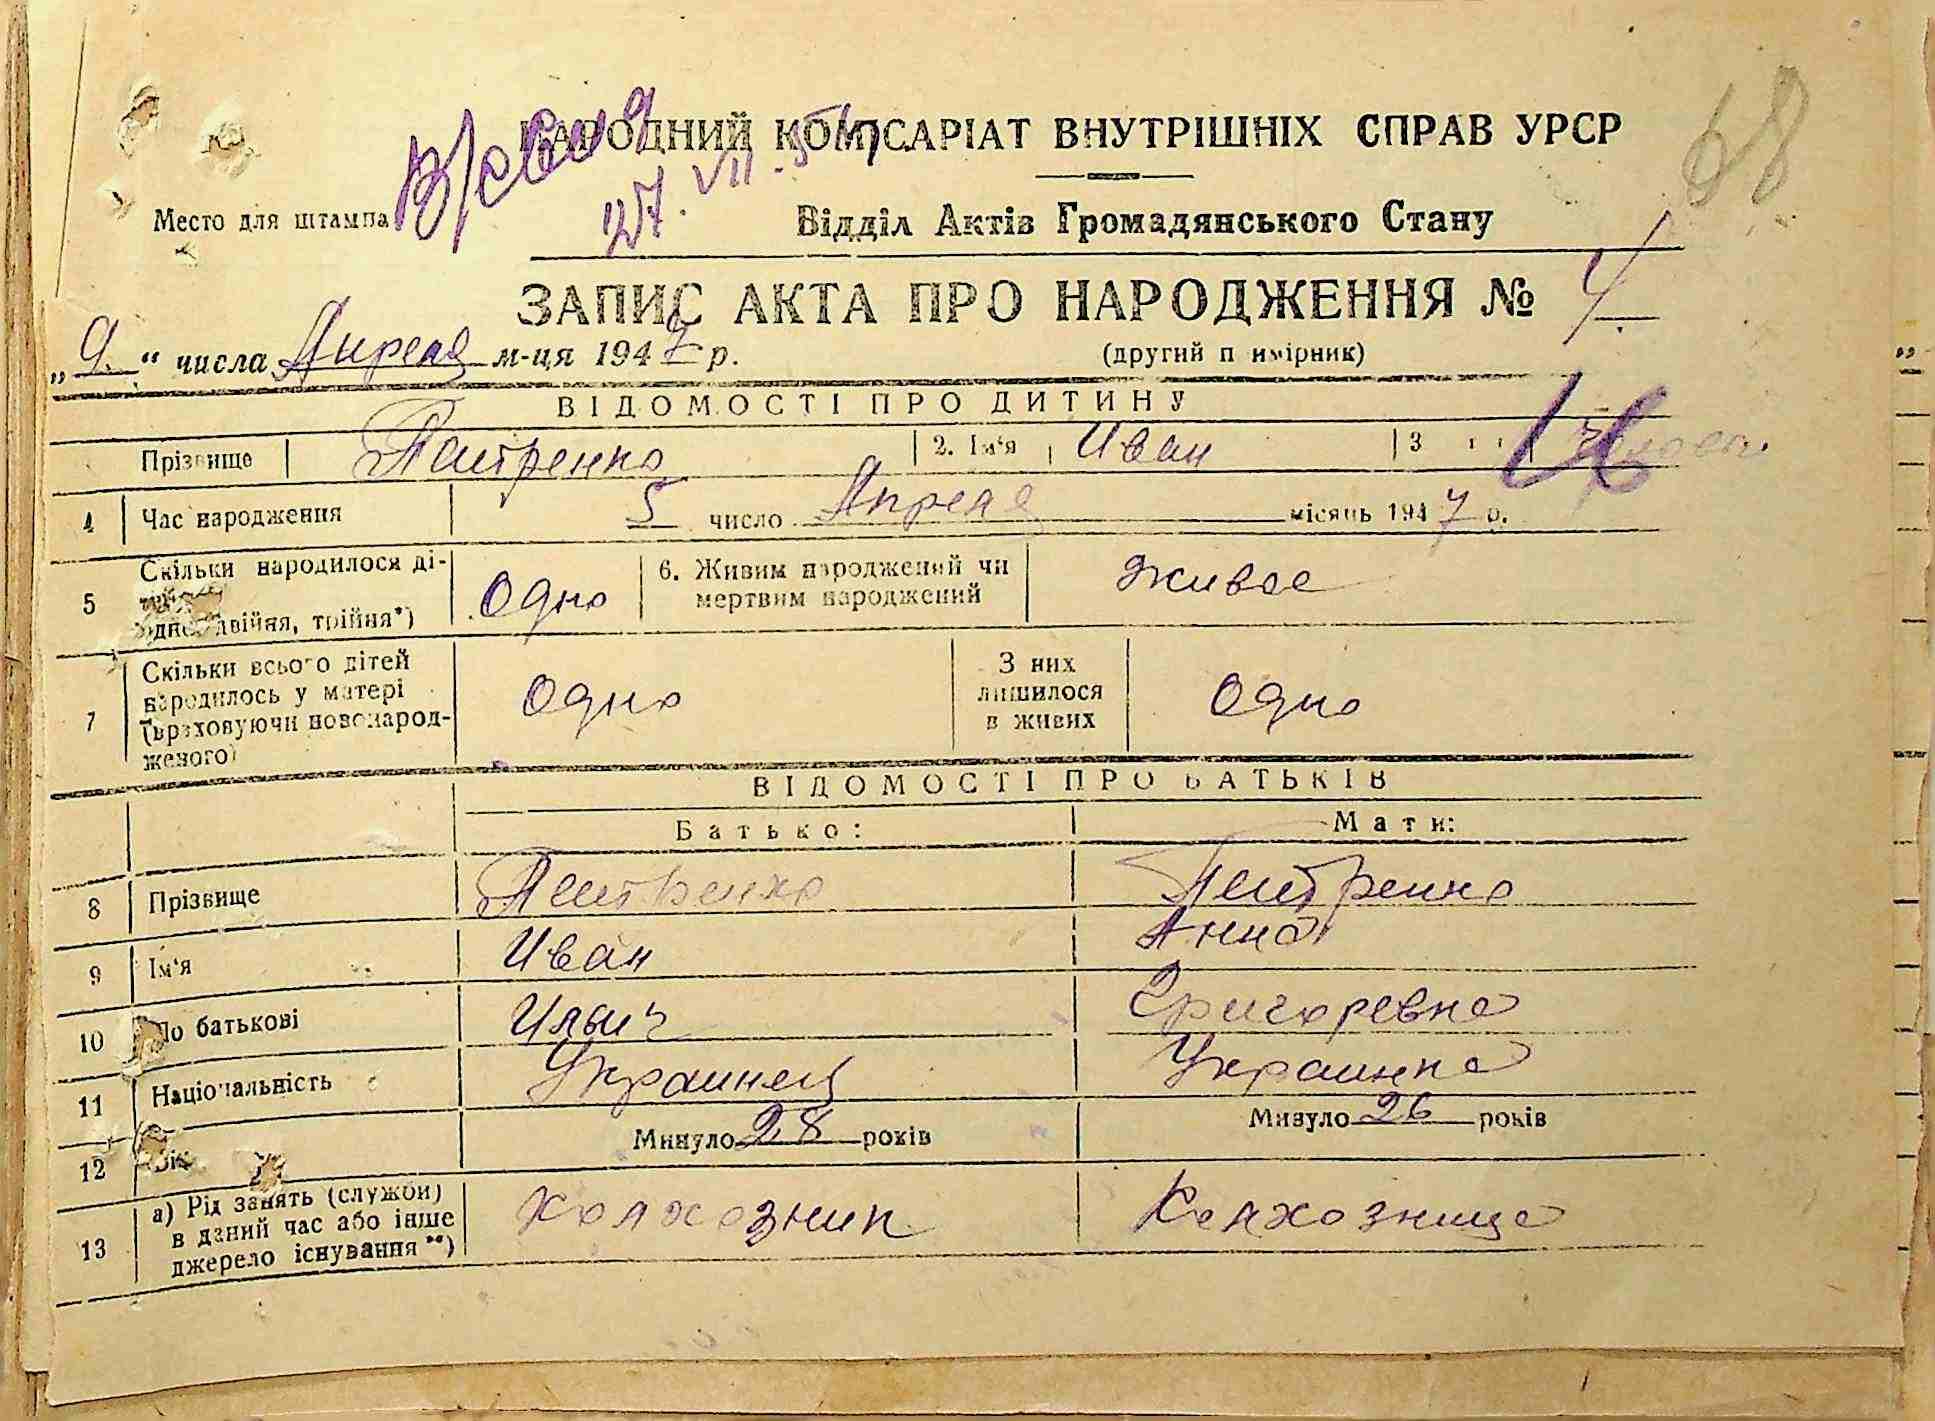 68
НАРОДНИЙ КОМІСАРІАТ ВНУТРІШНІХ СПРАВ УРСР
27. VII
Место для штампа
Відділ Актів Громадянського Стану
ЗАПИС АКТА ПРО НАРОДЖЕННЯ № 4
„9." числа Апреля м-ця 1947 р. (другий п имірник)
ВІДОМОСТІ ПРО ДИТИНУ
Прізвище Петренко 2. Ім'я Иван 3
4 Час народження 5 число Апреля місяць 1947 р.
5 Скільки народилося ді-
двійня, трійня*) Одно 6. Живим народжений чи мертвим народжений живое
7 Скільки всього дітей народилось у матері (враховуючи новонародженого) Одно З них лишилося в живих Одно
ВІДОМОСТІ ПРО БАТЬКІВ
Батько: Мати:
8 Прізвище Петренко Петренко
9 Ім'я Иван Анна
10 По батькові Ильич Григоревна
11 Національність Украинец Украинка
12 Вік Минуло 28 років Минуло 26 років
13 а) Рід занять (служби) в даний час або інше джерело існування**) Колхозник Колхозница